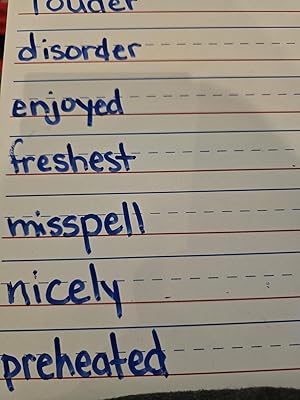 louder
disorder
enjoyed
freshest
misspell
nicely
preheated